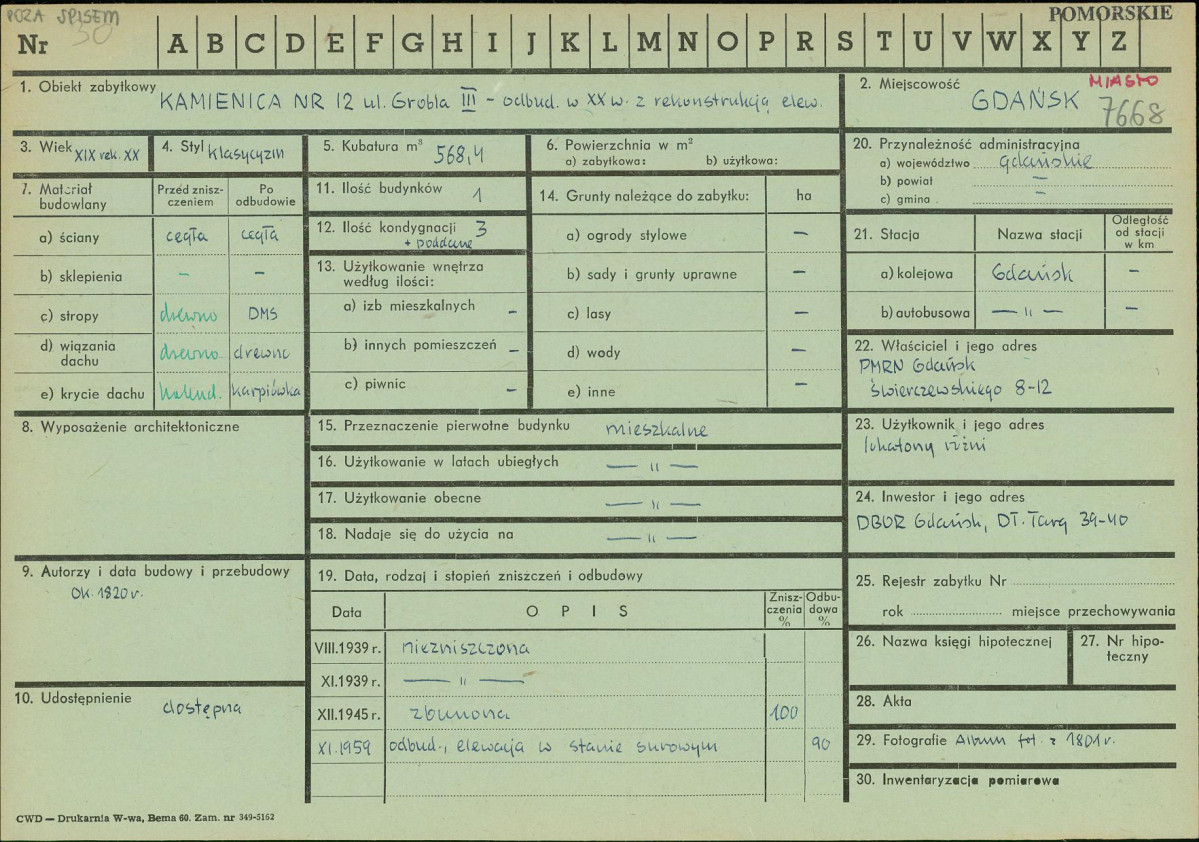 POZA SPISEM
30
POMORSKIE
Nr A B C D E F G H I J K L M N O P R S T U V W X Y Z
1. Obiekt zabytkowy KAMIENICA NR 12 ul. Grobla III – odbud. w XX w. z rekonstrukcją elew.
2. Miejscowość MIASTO
GDAŃSK 7668
3. Wiek XIX rek. XX
4. Styl klasycyzm
5. Kubatura m³ 568,4
6. Powierzchnia w m²
a) zabytkowa: b) użytkowa:
20. Przynależność administracyjna
a) województwo gdańskie
b) powiat –
c) gmina –
7. Materiał budowlany
Przed znisz-czeniem
Po odbudowie
a) ściany cegła cegła
b) sklepienia – –
c) stropy drewno DMS
d) wiązania dachu drewno drewno
e) krycie dachu holend. karpiówka
11. Ilość budynków 1
12. Ilość kondygnacji 3
+ poddasze
13. Użytkowanie wnętrza
według ilości:
a) izb mieszkalnych –
b) innych pomieszczeń –
c) piwnic –
14. Grunty należące do zabytku: ha
a) ogrody stylowe –
b) sady i grunty uprawne –
c) lasy –
d) wody –
e) inne –
21. Stacja Nazwa stacji Odległość od stacji w km
a) kolejowa Gdańsk –
b) autobusowa — " — –
22. Właściciel i jego adres
PMRN Gdańsk
Świerczewskiego 8-12
8. Wyposażenie architektoniczne
15. Przeznaczenie pierwotne budynku mieszkalne
16. Użytkowanie w latach ubiegłych — " —
17. Użytkowanie obecne — " —
18. Nadaje się do użycia na — " —
23. Użytkownik i jego adres
lokatorzy różni
24. Inwestor i jego adres
DBOR Gdańsk, Dł. Targ 39-40
9. Autorzy i data budowy i przebudowy
ok. 1820 r.
10. Udostępnienie
dostępna
19. Data, rodzaj i stopień zniszczeń i odbudowy
Data OPIS Znisz-czenia % Odbu-dowa %
VIII.1939 r. niezniszczona
XI.1939 r. — " —
XII.1945 r. zburzona 100
XI.1959 odbud., elewacja w stanie surowym 90
25. Rejestr zabytku Nr
rok miejsce przechowywania
26. Nazwa księgi hipotecznej
27. Nr hipo-
teczny
28. Akta
29. Fotografie Album fot. z 1801 r.
30. Inwentaryzacja pomiarowa
CWD — Drukarnia W-wa, Bema 60. Zam. nr 349-5162